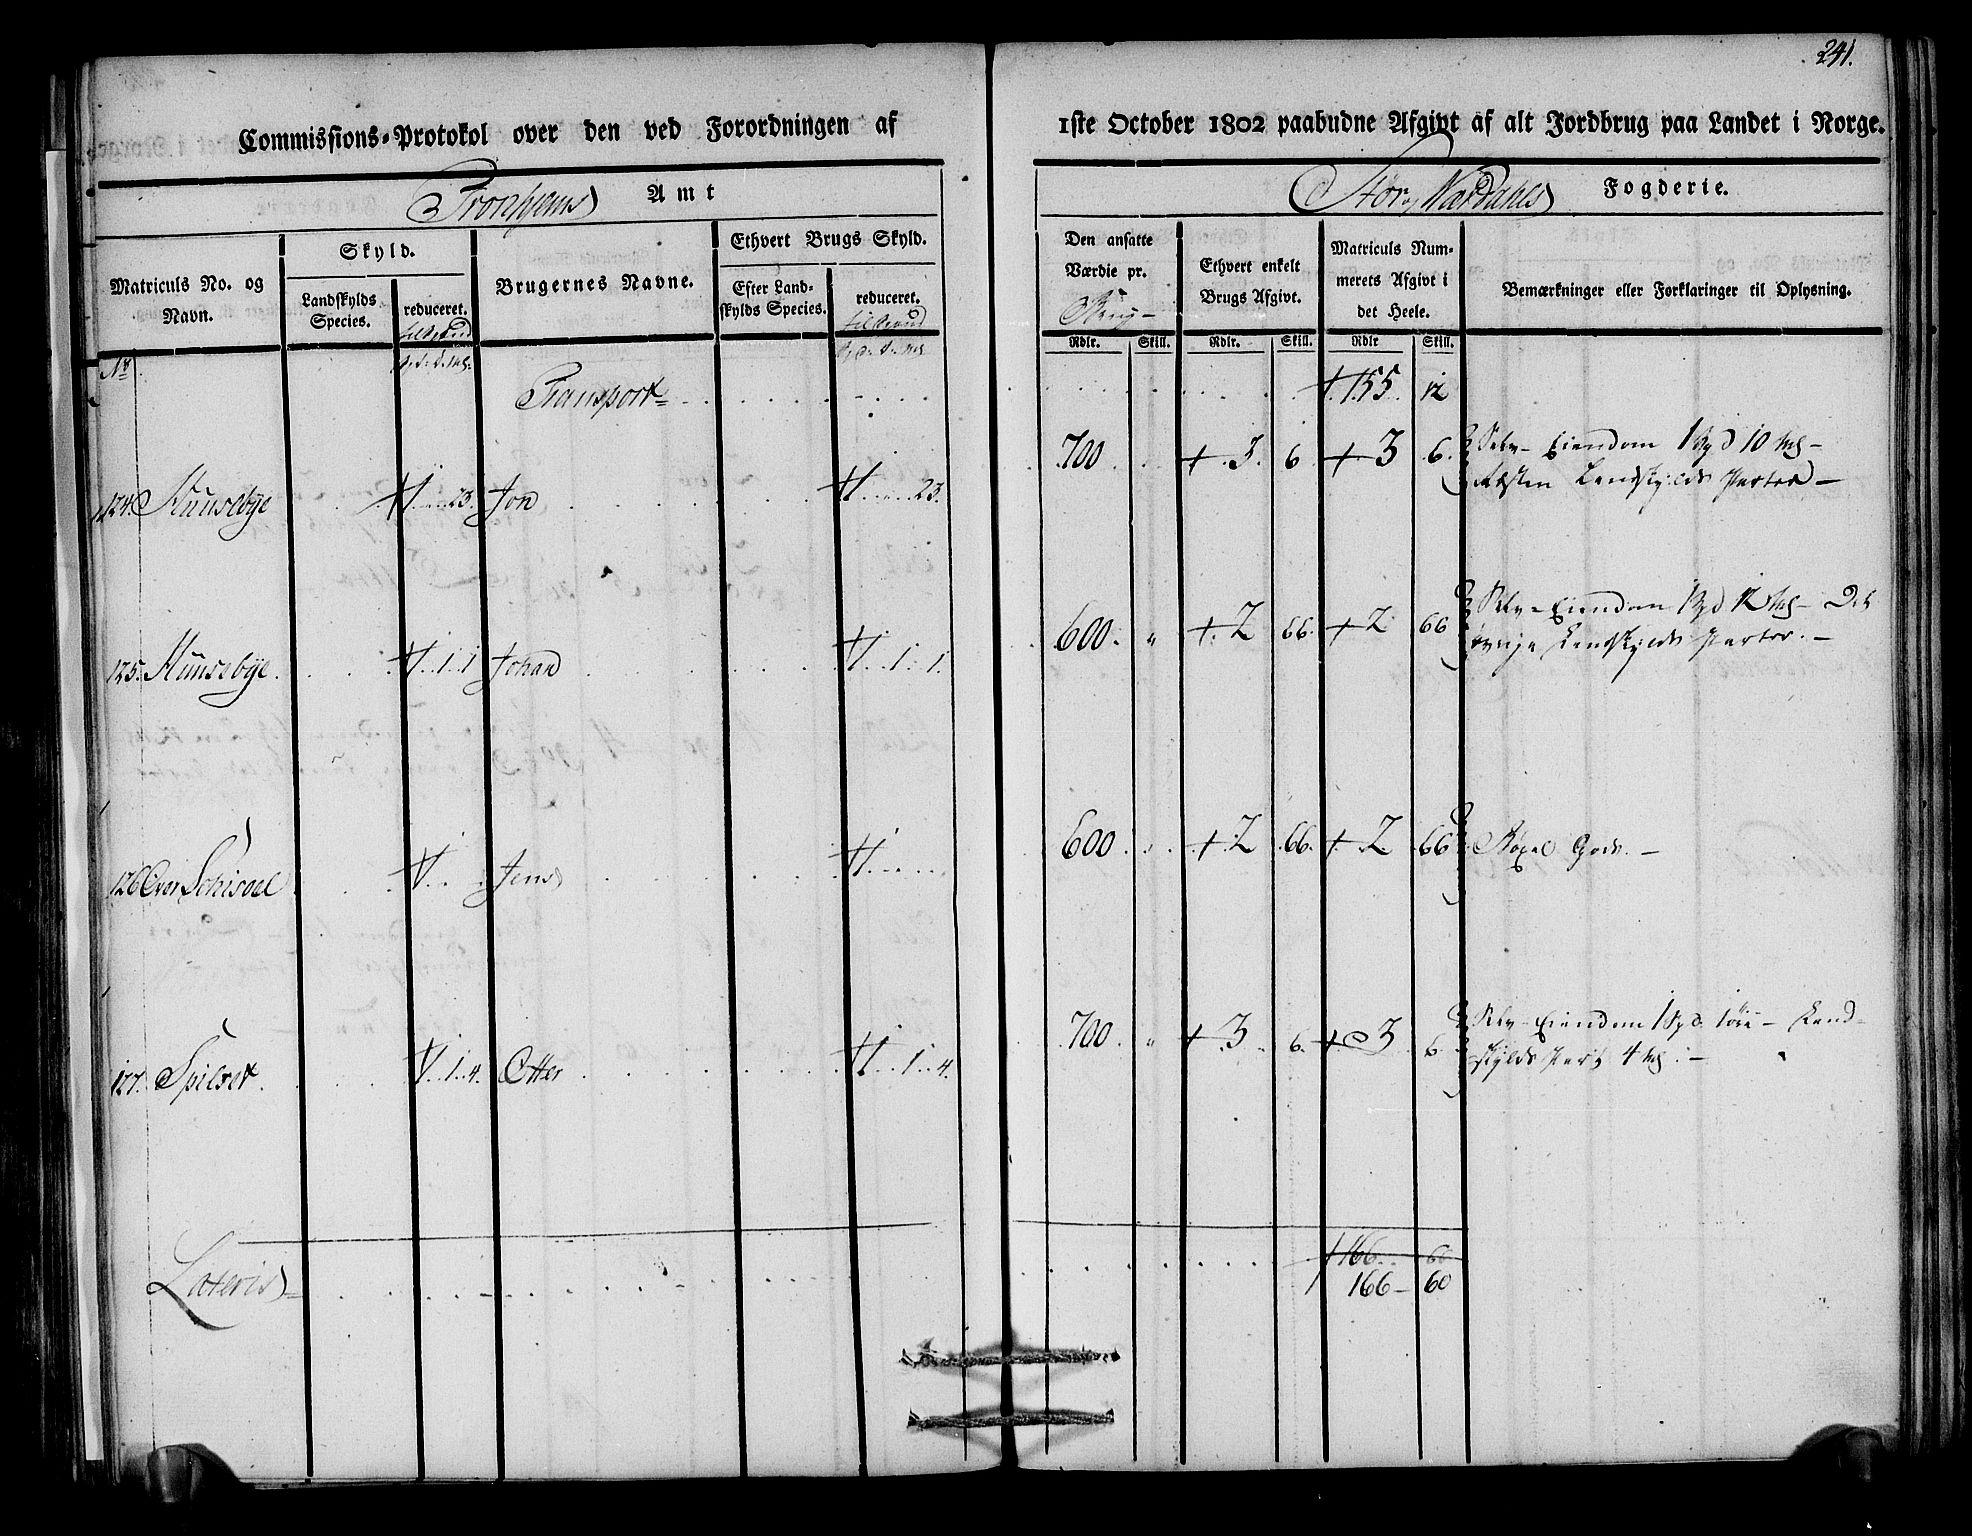 241.
Commissions-Protokol over den ved Forordningen af 1ste October 1802 paabudne Afgivt af alt Jordbrug paa Landet i Norge.
Tronhjems Amt
Stør og Værdahls Fogderie.
Matriculs No. og Navn.
Skyld.
Landskylds Species.
reduceret.
Brugernes Navne.
Ethvert Brugs Skyld.
Efter Landskylds Species.
reduceret.
Den ansatte Værdie pr. Brug
Ethvert enkelt Brugs Afgivt.
Matriculs Nummerets Afgivt i det Heele.
Bemærkninger eller Forklaringer til Oplysning.
Rdlr. Skill. Rdlr. Skill. Rdlr Skill.
No
Transport 155 12
124. Huusebye 1 . . 23. Jon 1 . . 23. 700 3. 6 3 6. Selv-Eiendom 1 Spd 10 mk
Resten Landskylds Parter
125. Huusebye 1. 1. 1 Johan 1. 1. 1. 600. " 2 66. 2 66 Selv-Eiendom 1 Spd 12 mk Det
øvrige Landskylds Parter.
126 Over Schisoel 1 . . Jens 1 . . 600 2 66. 2 66 Gods.
127. Spilset. 1. 1. 4. Otter 1. 1. 4. 700. " 3. 6. 3 6. Selv-Eiendom 1 Spd. 1 øre Land-
skylds Part 4 mk.
166 60
Lateris 166 60